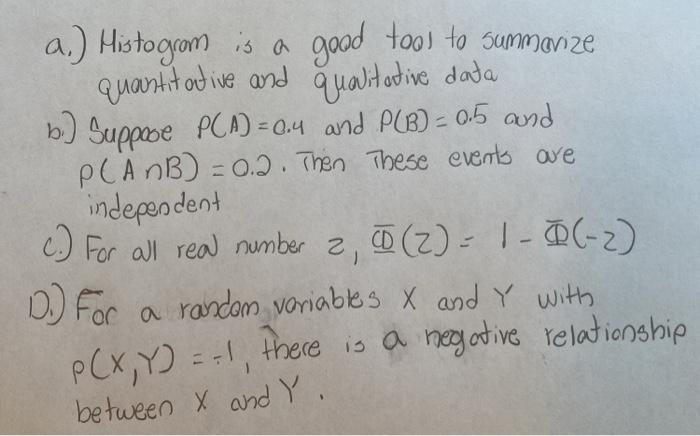 a.) Histogram is a good tool to summarize
quantitative and qualitative data
b.) Suppose P(A) = 0.4 and P(B) = 0.5 and
P(A∩B) = 0.2. Then These events are
independent
C.) For all real number z, Φ(z) = 1 - Φ(-z)
D.) For a random variables X and Y with
ρ(X,Y) = -1, there is a negative relationship
between X and Y.